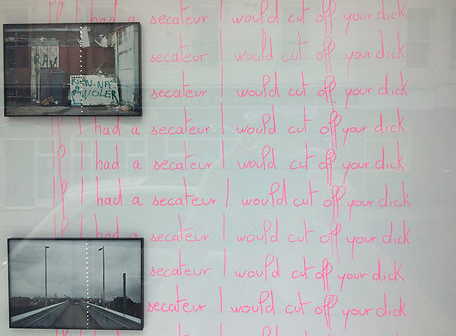 If I had a secateur I would cut off your dick
secateur I would cut off your dick
secateur I would cut off your dick
If I had a secateur I would cut off your dick
If I had a secateur I would cut off your dick
If I had a secateur I would cut off your dick
If I had a secateur I would cut off your dick
secateur I would cut off your dick
secateur I would cut off your dick
VOLER